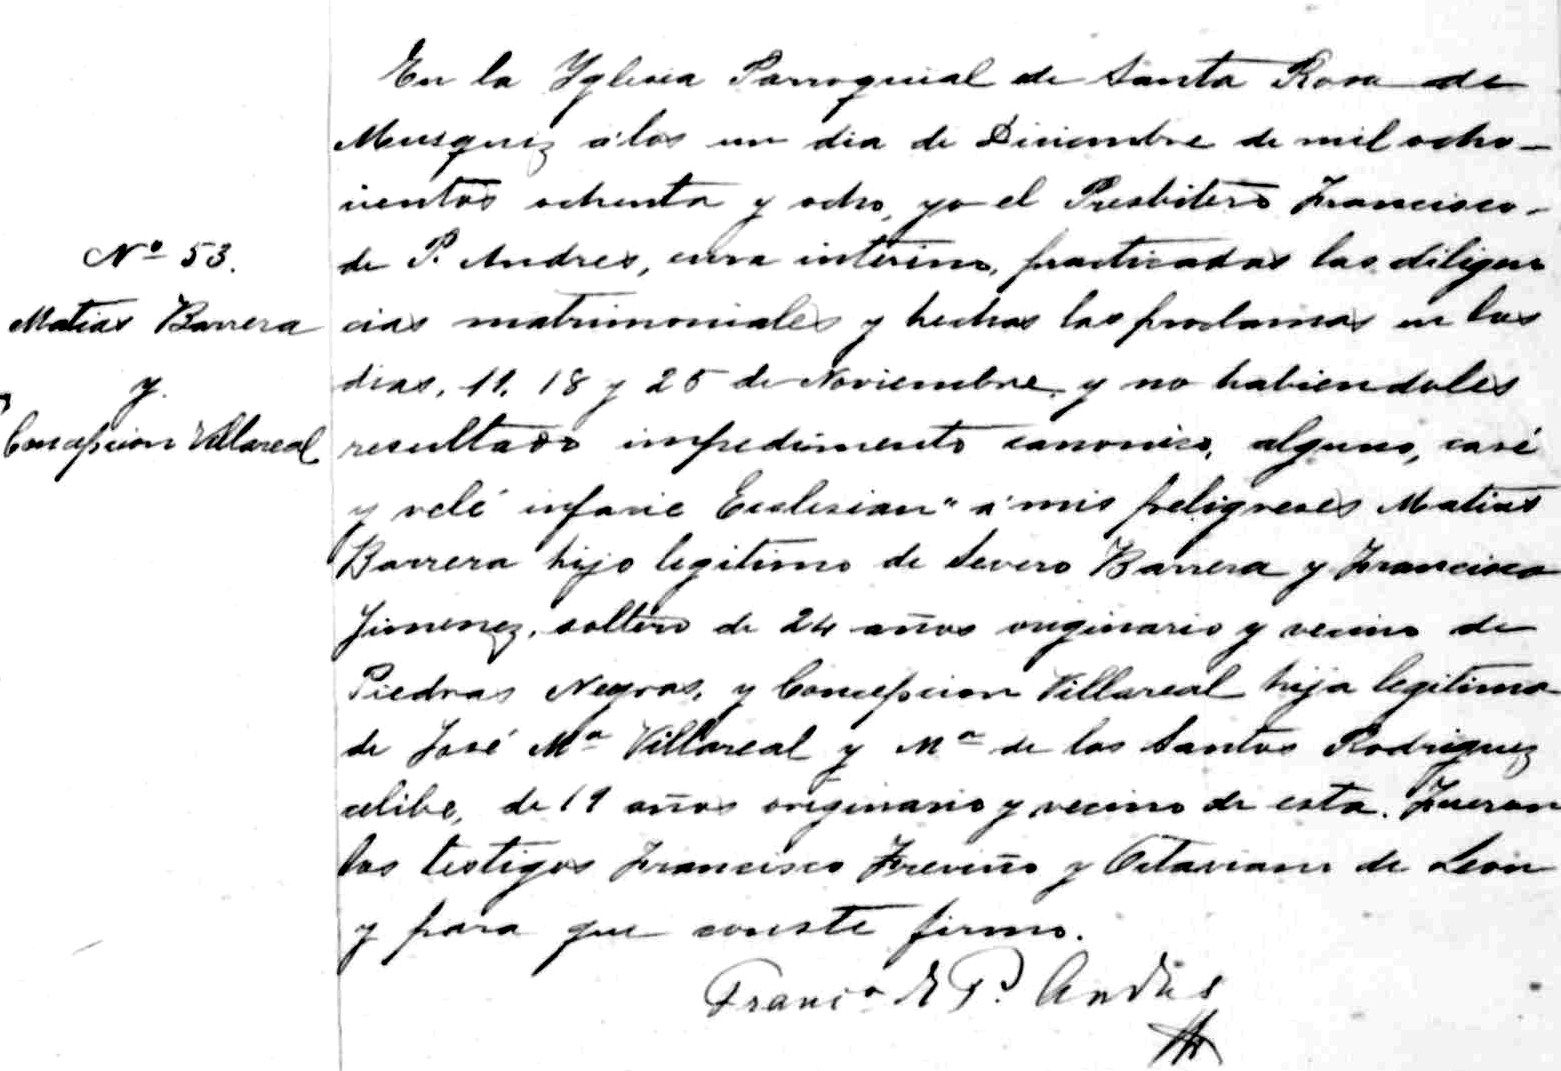 Nº 53.
Matias Barrera
y
Concepcion Villareal
En la Yglesia Parroquial de Santa Rosa de
Musquiz á los un dia de Diciembre de mil ocho-
cientos ochenta y ocho, yo el Presbitero Francisco
de P. Andres, cura interino, practicadas las diligen
cias matrimoniales y hechas las proclamas en los
dias, 11, 18 y 25 de Noviembre, y no habiendoles
resultado impedimento canonico, alguno, casé
y velé infacie Eclesian" a mis feligreses Matias
Barrera hijo legitimo de Severo Barrera y Francisca
Jimenez, soltero de 24 años originario y vecino de
Piedras Negras, y Concepcion Villareal hija legitima
de José Mª Villareal y Mª de los Santos Rodriguez
celibe, de 19 años originario y vecino de esta. Fueron
los testigos Francisco Treviño y Octaviano de Leon
y para que conste firmo.
Francº de P. Andrés